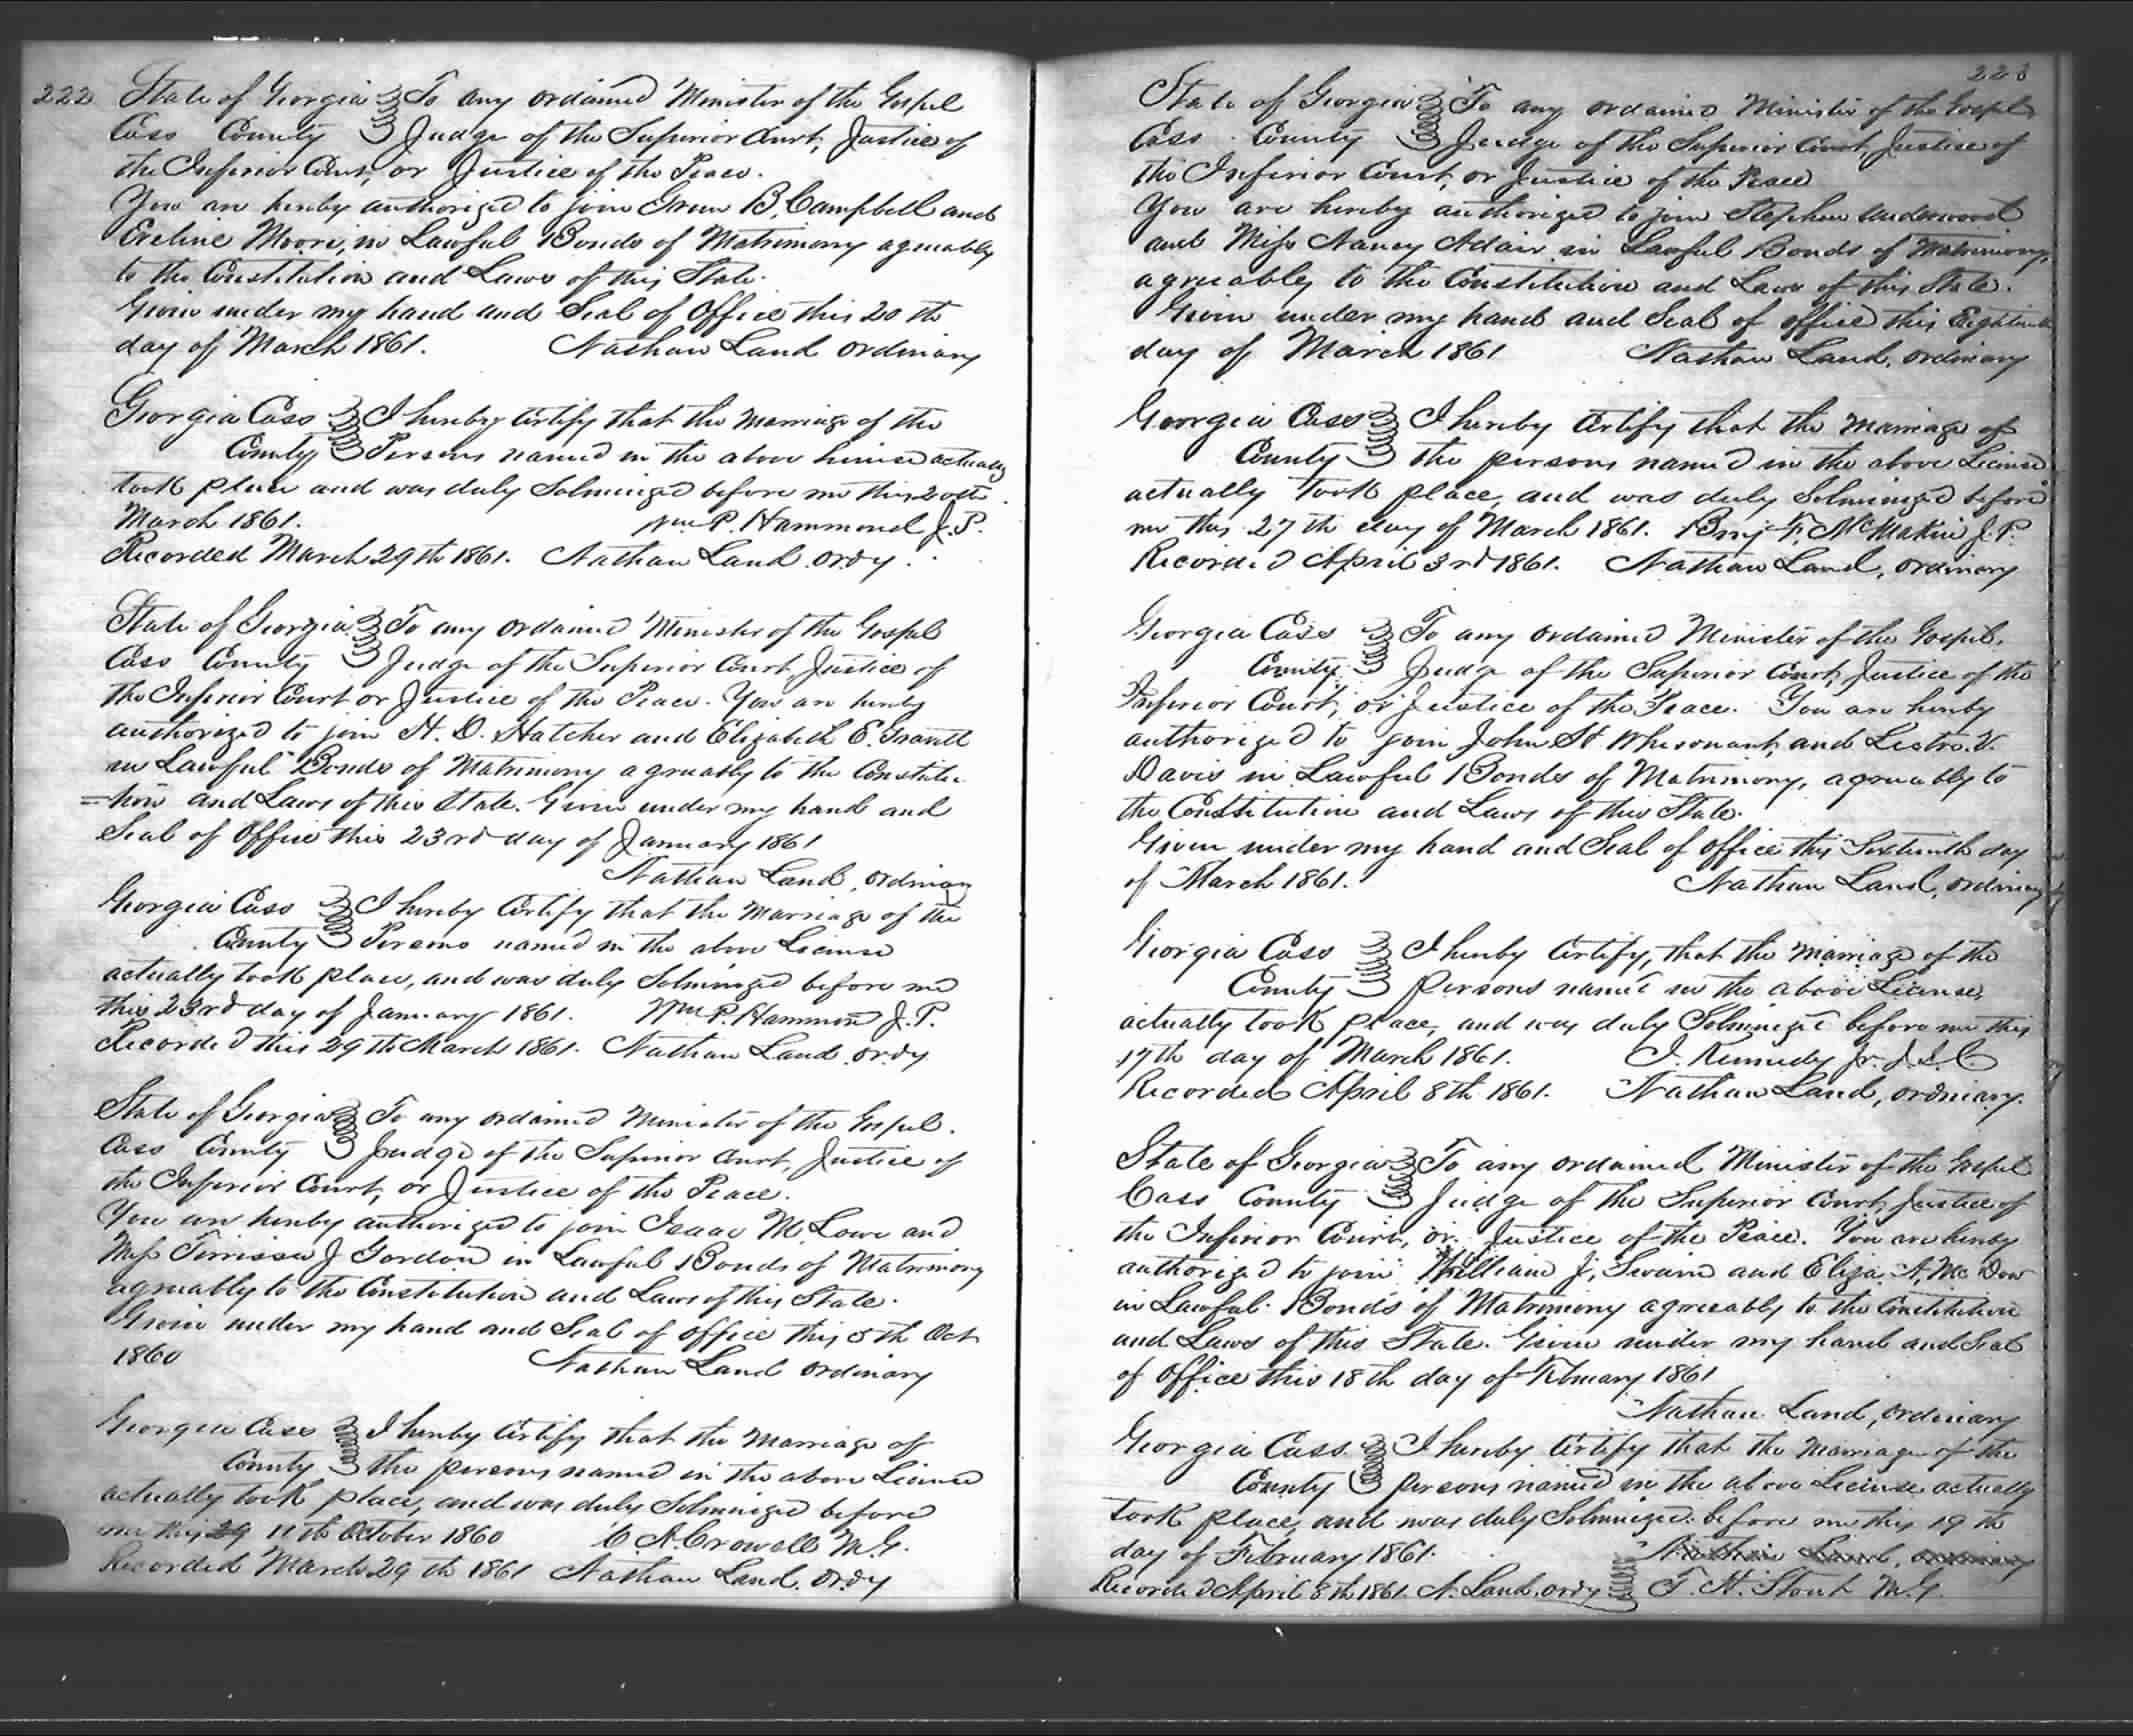 222
State of Georgia To any ordained Minister of the Gospel
Cass County Judge of the Superior Court, Justice of
the Inferior Court, or Justice of the Peace.
You are hereby authorized to join Green B. Campbell and
Eveline Moore, in Lawful Bonds of Matrimony agreeably
to the Constitution and Laws of this State.
Given under my hand and Seal of Office this 20th
day of March 1861. Nathan Land Ordinary
Georgia Cass I hereby Certify that the Marriage of the
County Persons named in the above license actually
took place and was duly Solminized before me this 20th
March 1861. Wm P. Hammond J.P.
Recorded March 29th 1861. Nathan Land Ordy.
State of Georgia To any ordained Minister of the Gospel
Cass County Judge of the Superior Court, Justice of
the Inferior Court or Justice of the Peace. You are hereby
authorized to join H. D. Hatcher and Elizabeth E.
in Lawful Bonds of Matrimony agreeably to the Constitu
=tion and Laws of this State. Given under my hand and
Seal of Office this 23rd day of January 1861
Nathan Land, Ordinary
Georgia Cass I hereby Certify that the Marriage of the
County Persons named in the above License
actually took place, and was duly Solminized before me
this 23rd day of January 1861. Wm P. Hammond J.P.
Recorded this 29th March 1861. Nathan Land Ordy
State of Georgia To any ordained Minister of the Gospel.
Cass County Judge of the Superior Court, Justice of
the Inferior Court, or Justice of the Peace.
You are hereby authorized to join Isaac M. Lowe and
Miss J Gordon in Lawful Bonds of Matrimony
agreeably to the Constitution and Laws of this State.
Given under my hand and Seal of office this 5th Oct
1860 Nathan Land Ordinary
Georgia Cass I hereby Certify that the Marriage of
County the persons named in the above License
actually took place, and was duly Solminized before
me this 11th October 1860 C. A. Crowell M.G.
Recorded March 29th 1861 Nathan Land Ordy
223
State of Georgia To any ordained Minister of the Gospel
Cass County Judge of the Superior Court, Justice of
the Inferior Court, or Justice of the Peace
You are hereby authorized to join Stephen Underwood
and Miss Nancy Adair in Lawful Bonds of Matrimony,
agreeably to the Constitution and Laws of this State.
Given under my hand and Seal of office this Eighteenth
day of March 1861 Nathan Land, Ordinary
Georgia Cass I hereby Certify that the Marriage of
County the persons named in the above License
actually took place, and was duly Solminized before
me this 27th day of March 1861. Benj F. McMakin J.P.
Recorded April 3rd 1861. Nathan Land, Ordinary
Georgia Cass To any ordained Minister of the Gospel,
County Judge of the Superior Court, Justice of the
Inferior Court, or Justice of the Peace. You are hereby
authorized to join John St Whisonant, and V.
Davis in Lawful Bonds of Matrimony, agreeably to
the Constitution and Laws of this State.
Given under my hand and Seal of office this Sixteenth day
of March 1861. Nathan Land, Ordinary
Georgia Cass I hereby Certify, that the Marriage of the
County Persons named in the above License,
actually took place, and was duly Solminized before me this
17th day of March 1861. J. Kennedy Jr. J.I.C
Recorded April 8th 1861. Nathan Land, Ordinary.
State of Georgia To any ordained Minister of the Gospel
Cass County Judge of the Superior Court, Justice of
the Inferior Court, or Justice of the Peace. You are hereby
authorized to join William J. Swain and Eliza A. McDow
in Lawful Bonds of Matrimony agreeably to the Constitution
and Laws of this State. Given under my hand and Seal
of Office this 18th day of February 1861
Nathan Land, Ordinary
Georgia Cass. I hereby Certify that the Marriage of the
County persons named in the above License actually
took place, and was duly Solminized before me this 19th
day of February 1861. Nathan Land, Ordinary
Recorded April 8th 1861. N. Land, Ordy T. H. Stout M.G.